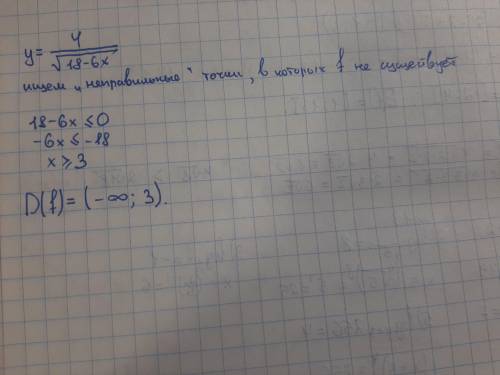 y = 4/√(18-6x)
ищем "неправильные" точки, в которых f не существует
18-6x ≤ 0
-6x ≤ -18
x ≥ 3
D(f) = (-∞; 3).